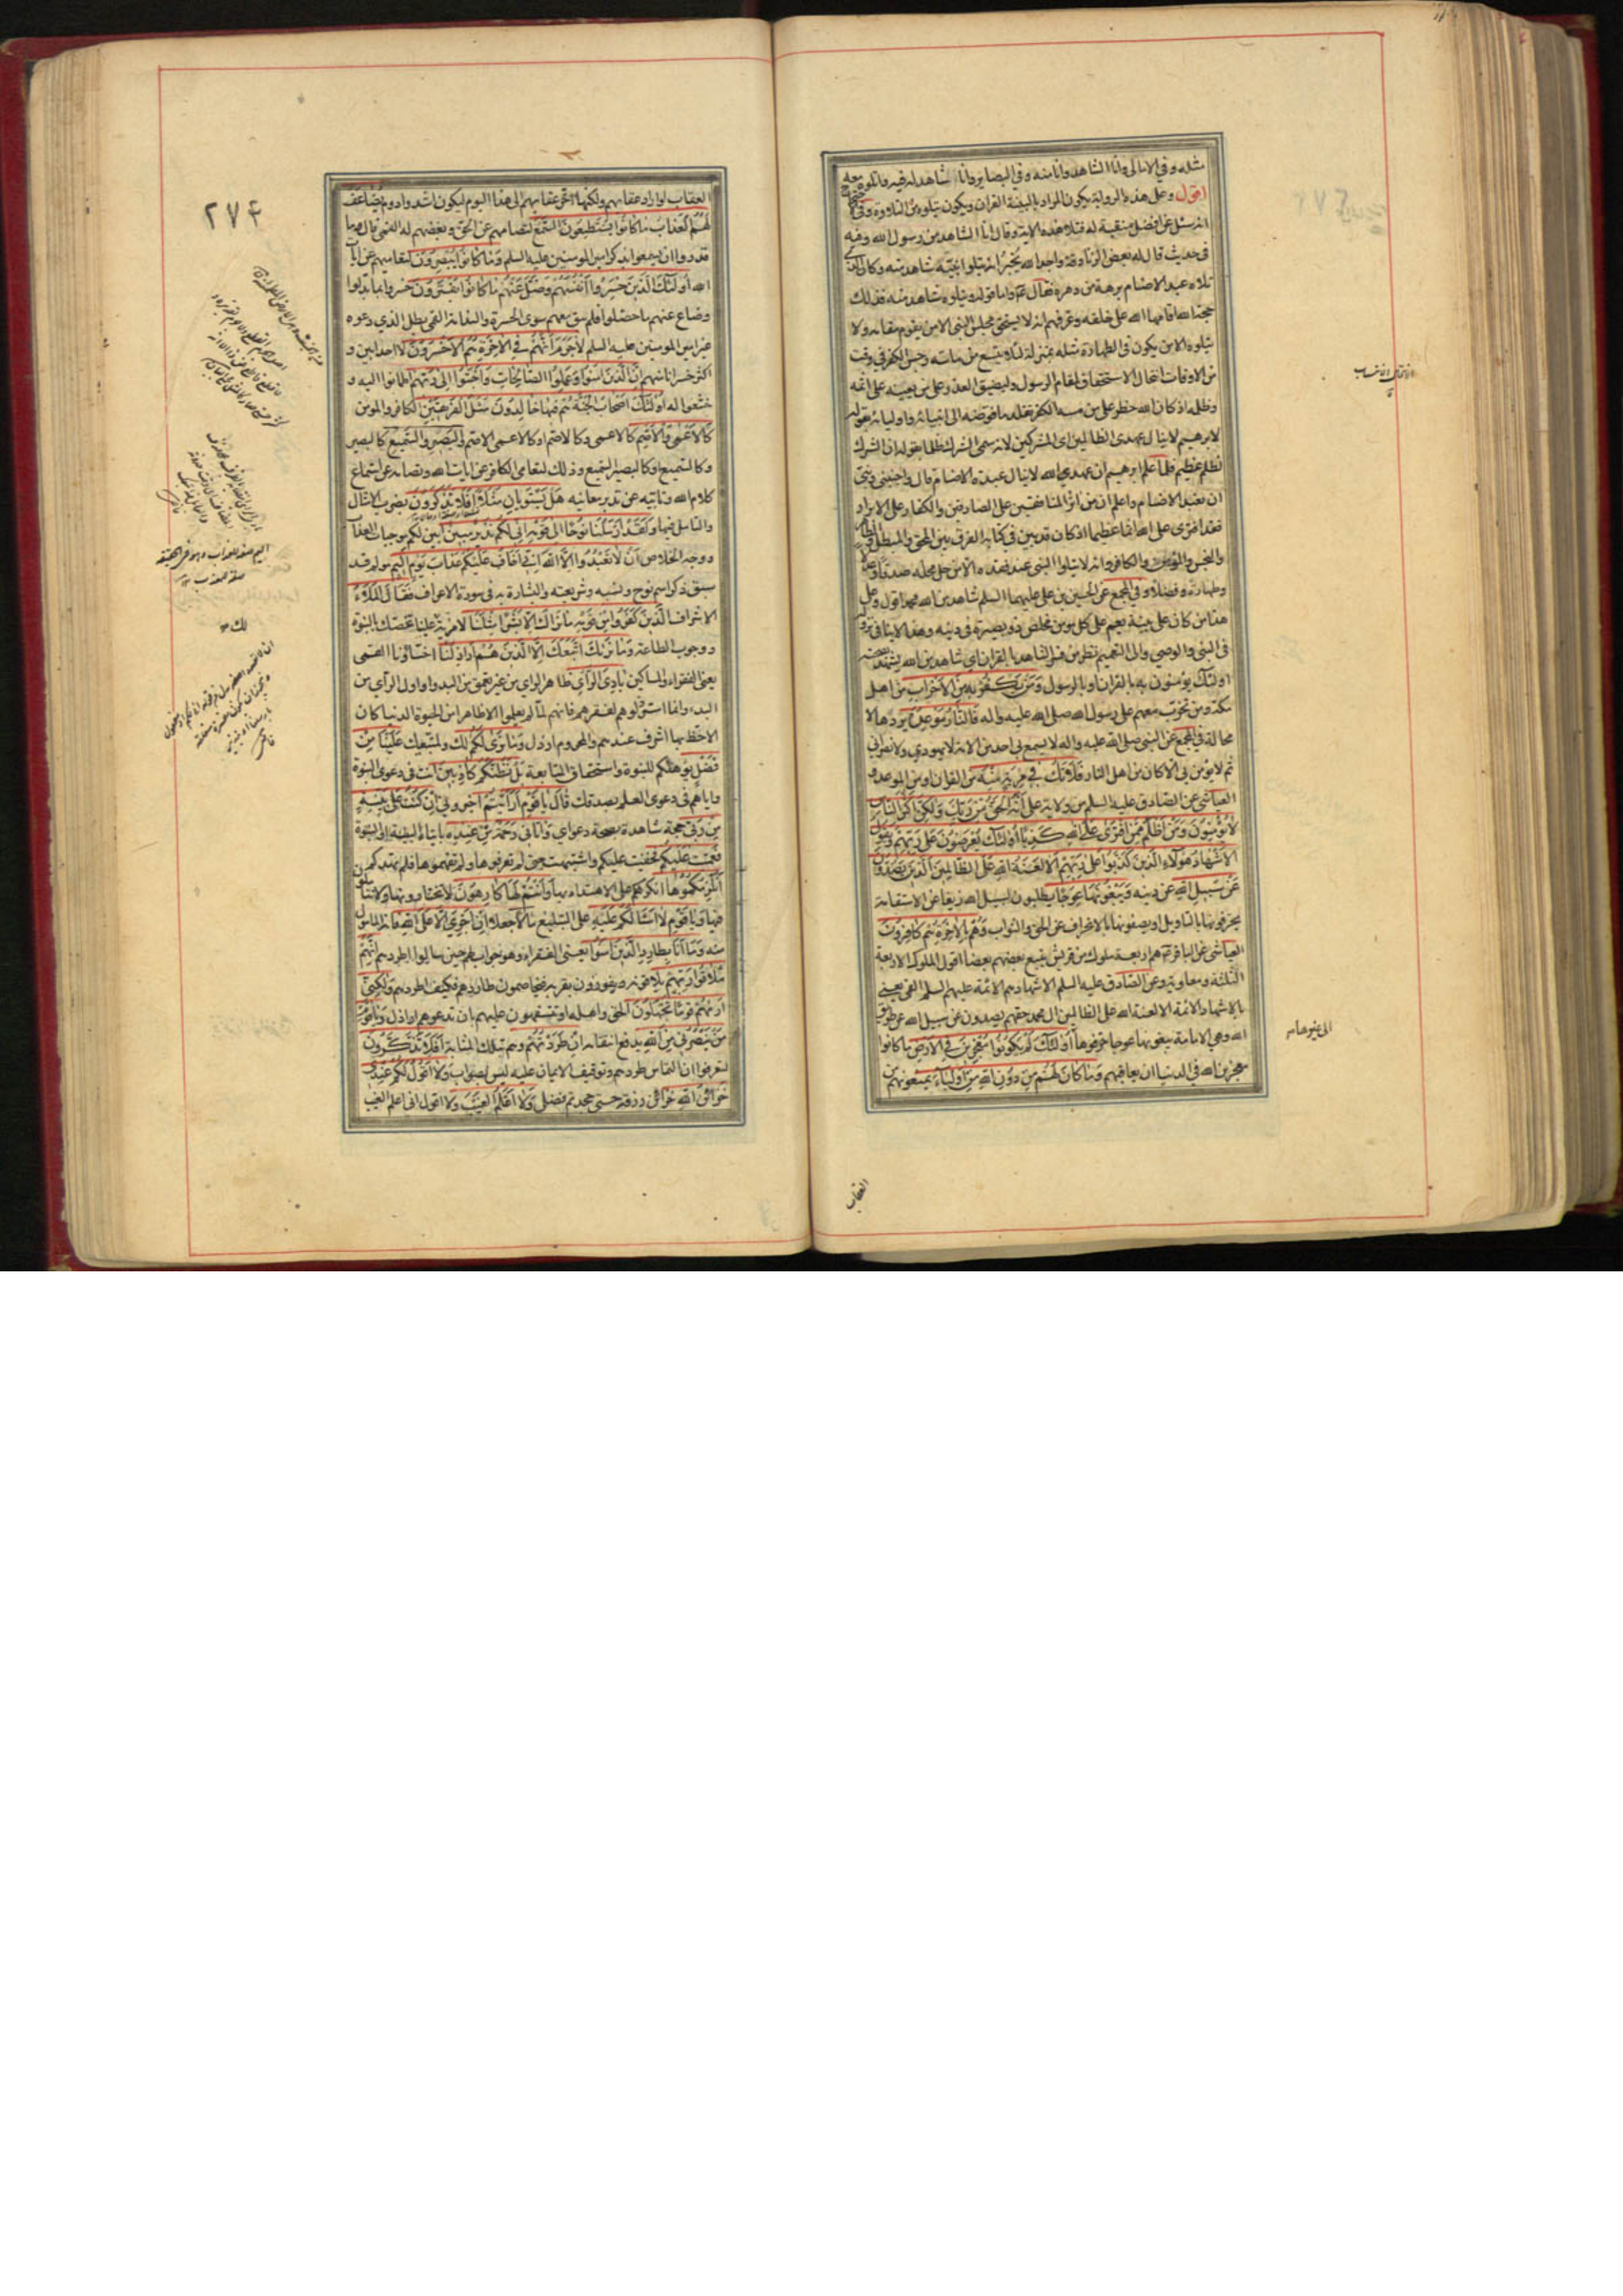 مثله وفي الامالي وانا الشاهد وانا منه وفي البصائر وانا شاهد له فيه واتلوه معه
اقول وعلى هذه الرواية يكون المراد بالبينة القران ويكون يتلوه من التلاوة وفي
انه سئل عن افضل منقبة له فتلا هذه الاية وقال انا الشاهد من رسول الله وفيه
في حديث قال له بعض الزنادقة واجد الله يخبر انه يتلو نبيه شاهد منه وكان الذي
تلاه عبد الاصنام برهة من دهره فقال ع واما قوله ويتلوه شاهد منه فذلك
حجة الله اقامها الله على خلقه وعرفهم انه لا يستحق مجلس النبي الا من يقوم مقامه ولا
يتلوه الا من يكون في الطهارة مثله بمنزلة لئلا يتسع من ماسه رجس الكفر في وقت
من الاوقات انتحال الاستحقاق لمقام الرسول وليضيق العذر على من يعينه على اثمه
وظلمه اذ كان الله حظر على من مسه الكفر تقلد ما فوضه الى انبيائه واوليائه بقوله
لابرهيم لا ينال عهدي الظالمين اي المشركين لانه سمى الشرك ظلما بقوله ان الشرك
لظلم عظيم فلما علم ابرهيم ان عهد الله لا ينال عبدة الاصنام قال واجنبني وبني
ان نعبد الاصنام واعلم ان من اثر المنافقين على الصادقين والكفار على الابرار
فقد افترى على الله اثما عظيما اذ كان قد بين في كتابه الفرق بين المحق والمبطل والطاهر
والنجس والمؤمن والكافر وانه لا يتلو النبي عند فقده الا من حل محله صدقا وعدلا
وطهارة وفضلا وفي المجمع عن الحسين بن علي عليهما السلم شاهد من الله محمد اقول وعلى
هذا من كان على بينة يعم على كل مؤمن مخلص ذو بصيرة في دينه وهذا لا ينافي نزوله
في النبي والوصي والى التعميم نظر من فسر الشاهد بالقران اي شاهد من الله يشهد بصحته
اولئك يؤمنون به بالقران او بالرسول ومن يكفر به من الاحزاب من اهل
مكة ومن تحزب معهم على رسول الله صلى الله عليه واله فالنار موعده يردها لا
محالة في المجمع عن النبي صلى الله عليه واله لا يسمع بي احد من الامة لا يهودي ولا نصراني
ثم لا يؤمن بي الا كان من اهل النار فلا تك في مرية منه من القران او من الموعد و
العياشي عن الصادق عليه السلم من ولاية علي انه الحق من ربك ولكن اكثر الناس
لا يؤمنون ومن اظلم ممن افترى على الله كذبا اولئك يعرضون على ربهم ويقول
الاشهاد هؤلاء الذين كذبوا على ربهم الا لعنة الله على الظالمين الذين يصدون
عن سبيل الله عن دينه ويبغونها عوجا يطلبون لسبيل الله زيغا عن الاستقامة
يحرفونها بالتاويل او يصفونها بالانحراف عن الحق والثواب وهم بالاخرة هم كافرون
العياشي عن الباقر ع هم اربعة ملوك من قريش يتبع بعضهم بعضا اقول الملوك الاربعة
الثلثة ومعاوية وعن الصادق عليه السلم الاشهاد هم الائمة عليهم السلم القمي يعني
بالاشهاد الائمة الا لعنة الله على الظالمين ال محمد حقهم يصدون عن سبيل الله عن طريق
الله وهي الامامة يبغونها عوجا حرفوها اولئك لم يكونوا معجزين في الارض ما كانوا
معجزين الله في الدنيا ان يعاقبهم وما كان لهم من دون الله من اولياء يمنعونهم من
العقاب
الى غيرها مه
٢٧٤
العقاب لو اراد عقابهم ولكنها اخر عقابهم الى هذا اليوم ليكون اشد وادوم يضاعف
لهم العذاب ما كانوا يستطيعون السمع لتصامهم عن الحق وبغضهم له القمي قال ما
قدروا ان يسمعوا بذكر امير المؤمنين عليه السلم وما كانوا يبصرون لتعاميهم عن ايات
الله اولئك الذين خسروا انفسهم وضل عنهم ما كانوا يفترون خسروا بما بدلوا
وضاع عنهم ما حصلوا فلم يبق معهم سوى الحسرة والندامة القمي بطل الذي دعوه
غير امير المؤمنين عليه السلم لا جرم انهم في الاخرة هم الاخسرون لا احد ابين و
اكثر خسرانا منهم ان الذين امنوا وعملوا الصالحات واخبتوا الى ربهم اطمانوا اليه و
خشعوا له اولئك اصحاب الجنة هم فيها خالدون مثل الفريقين الكافر والمؤمن
كالاعمى والاصم كالاعمى وكالاصم او كالاعمى الاصم والبصير والسميع كالبصير
وكالسميع او كالبصير السميع وذلك لتعامي الكافر عن ايات الله وتصامه عن استماع
كلام الله وتابيه عن تدبر معانيه هل يستويان مثلا افلا تذكرون بضرب الامثال
والتامل فيها ولقد ارسلنا نوحا الى قومه اني لكم نذير مبين ابين لكم موجبات العذاب
ووجه الخلاص ان لا تعبدوا الا الله اني اخاف عليكم عذاب يوم اليم مولم قد
سبق ذكر اسم نوح ونسبه وشريعته والبشارة به في سورة الاعراف فقال الملاء
الاشراف الذين كفروا من قومه ما نراك الا بشرا مثلنا لا مزية لك علينا تخصك بالنبوة
ووجوب الطاعة وما نراك اتبعك الا الذين هم اراذلنا اخساؤنا القمي
يعني الفقراء والمساكين بادي الراي ظاهر الراي من غير تعمق من البدو او اول الراي من
البدء وانما استرذلوهم لفقرهم فانهم لما لم يعلموا الا ظاهرا من الحيوة الدنيا كان
الاحظ بها اشرف عندهم والمحروم ارذل وما نرى لكم لك ولمتبعيك علينا من
فضل يؤهلكم للنبوة واستحقاق المتابعة بل نظنكم كاذبين انت في دعوى النبوة
واياهم في دعوى العلم بصدقك قال يا قوم ارايتم اخبروني ان كنت على بينة
من ربي حجة شاهدة بصحة دعواي واتاني رحمة من عنده بايتاء البينة او النبوة
فعميت عليكم فخفيت عليكم واشتبهت حتى لم تعرفوها ولم تفهموها فلم تهدكم
انلزمكموها انكرهكم على الاهتداء بها وانتم لها كارهون لا تختارونها ولا تتاملون
فيها ويا قوم لا اسئلكم عليه على التبليغ مالا جعلا ان اجري الا على الله فانه المامول
منه وما انا بطارد الذين امنوا يعني الفقراء وهو جواب لهم حين سالوا طردهم انهم
ملاقوا ربهم يلاقونه ويفوزون بقربه فيخاصمون طاردهم فكيف اطردهم ولكني
اريكم قوما تجهلون الحق واهله او تتسفهون عليهم بان تدعوهم اراذل ويا قوم
من ينصرني من الله يدفع انتقامه ان طردتهم وهم بتلك المثابة افلا تذكرون
لتعرفوا ان التماس طردهم وتوقيف الايمان عليه ليس بصواب ولا اقول لكم عندي
خزائن الله خزائن رزقه حتى جحدتم فضلي ولا اعلم الغيب ولا اقول اني اعلم الغيب